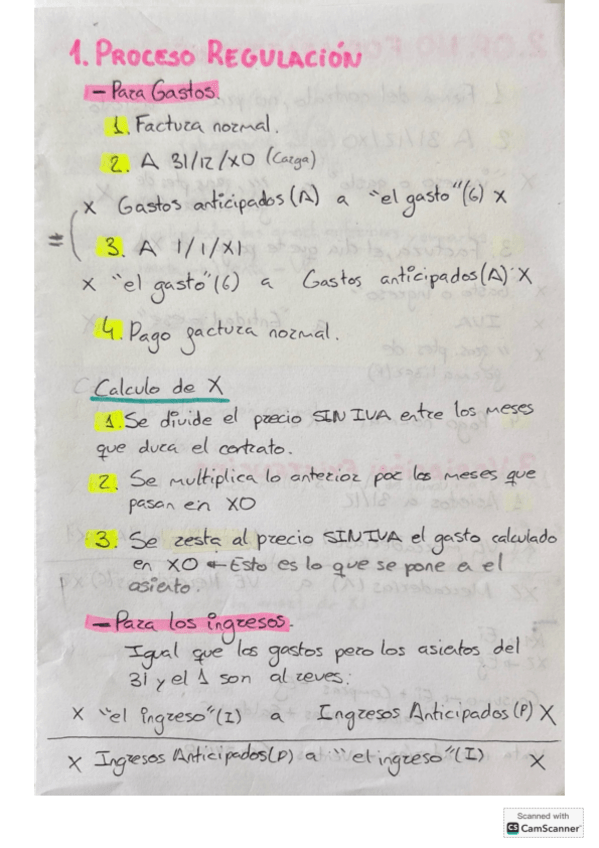 1. PROCESO REGULACIÓN
- Para Gastos.
1. Factura normal.
2. A 31/12/X0 (Carga)
X Gastos anticipados (A) a "el gasto" (6) X
= (
3. A 1/1/X1
X "el gasto" (6) a Gastos anticipados (A) X
4. Pago factura normal.
Calculo de X
1. Se divide el precio SIN IVA entre los meses
que dura el contrato.
2. Se multiplica lo anterior por los meses que
pasan en X0
3. Se resta al precio SIN IVA el gasto calculado
en X0 ← Esto es lo que se pone en el
asiento.
- Para los ingresos.
Igual que los gastos pero los asientos del
31 y el 1 son al reves:
X "el ingreso" (I) a Ingresos Anticipados (P) X
X Ingresos Anticipados (P) a "el ingreso" (I) X
Scanned with
CS CamScanner